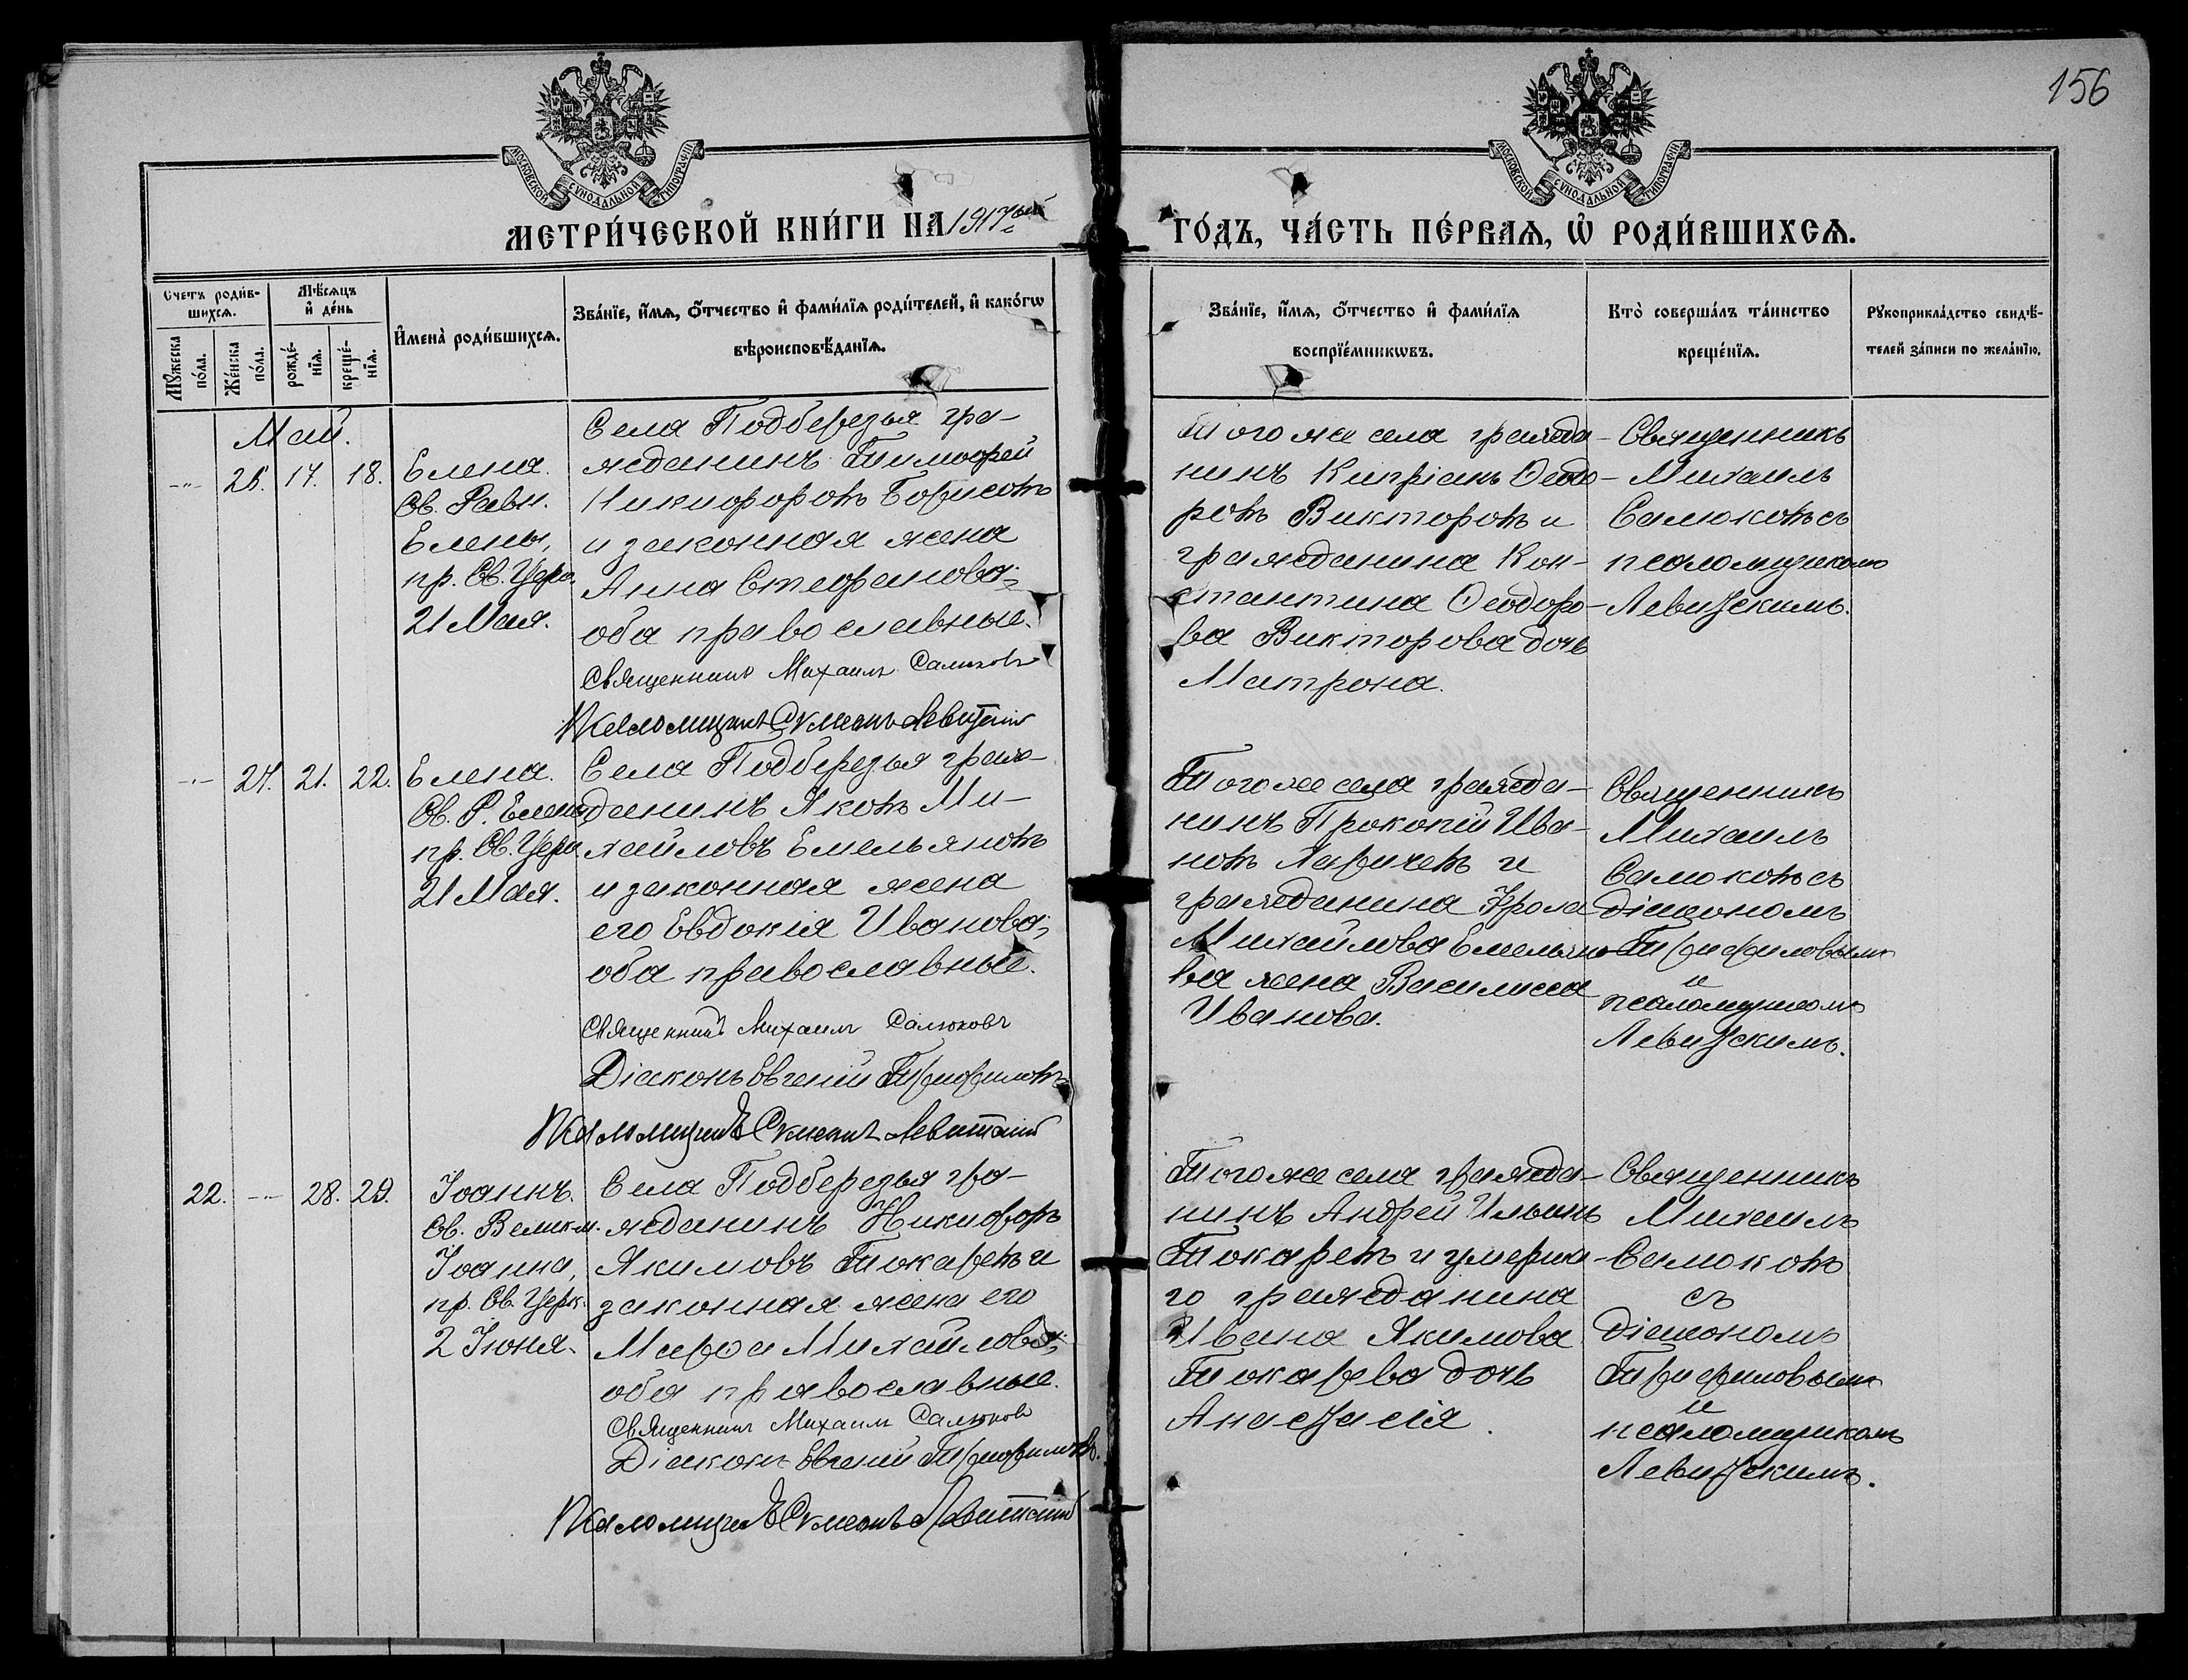 156
МОСКОВСКОЙ СУНОДАЛЬНОЙ ТИПОГРАФІИ
МОСКОВСКОЙ СУНОДАЛЬНОЙ ТИПОГРАФІИ
МЕТРИ́ЧЕСКОЙ КНИ́ГИ НА 1917ый ГО́ДЪ, ЧА́СТЬ ПЕ́РВАѦ, Ѡ҆ РОДИ́ВШИХСѦ.
Счетъ роди́в-
шихсѧ.
Мꙋ́жеска по́ла.
Же́нска по́ла.
Мѣ́сѧцъ
и҆ де́нь
рожде́-
нїѧ.
креще́-
нїѧ.
И҆мена̀ роди́вшихсѧ.
Зва́нїе, и҆́мѧ, ѻ҆́тчество и҆ фами́лїѧ роди́телей, и҆ како́гѡ
вѣроисповѣ́данїѧ.
Зва́нїе, и҆́мѧ, ѻ҆́тчество и҆ фами́лїѧ
воспрїе́мникѡвъ.
Кто̀ соверша́лъ та́инство
креще́нїѧ.
Рꙋкоприкла́дство свидѣ́-
телей за́писи по жела́нїю.
Май.
-"- 26. 17. 18.
Елена.
Св. Равн.
Елены,
пр. Св. Церк.
21 Мая.
Села Подберезья гра-
жданинъ Тимоѳей
Никифоровъ Борисовъ
и законная жена
Анна Стефанова;
оба православные.
Священникъ Михаилъ Салюковъ
Псаломщикъ Сумеонъ Левитскій
Того же села гражда-
нинъ Кипріанъ Ѳеодо-
ровъ Викторовъ и
гражданина Кон-
стантина Ѳеодоро-
ва Викторова дочь
Матрона.
Священникъ
Михаилъ
Салюковъ съ
псаломщикомъ
Левитскимъ.
-"- 27. 21. 22.
Елена.
Св. Р. Елены,
пр. Св. Церк.
21 Мая.
Села Подберезья граж-
данинъ Яковъ Ми-
хайловъ Емельяновъ
и законная жена
его Евдокія Иванова;
оба православные.
Священникъ Михаилъ Салюковъ
Діаконъ Евгеній Трифиловъ
Псаломщикъ Сумеонъ Левитскій
Того же села гражда-
нинъ Прокопій Ива-
новъ Ларичевъ и
гражданина Фрола
Михайлова Емельяно-
ва жена Василисса
Иванова.
Священникъ
Михаилъ
Салюковъ съ
діакономъ
Трифиловымъ
и
псаломщикомъ
Левитскимъ.
22. -"- 28. 29.
Іоаннъ.
Св. Великм.
Іоанна,
пр. Св. Церк.
2 Іюня.
Села Подберезья гра-
жданинъ Никифоръ
Якимовъ Токаревъ и
законная жена его
Марѳа Михайлова;
оба православные.
Священникъ Михаилъ Салюковъ
Діаконъ Евгеній Трифиловъ.
Псаломщикъ Сумеонъ Левитскій
Того же села гражда-
нинъ Андрей Ильинъ
Токаревъ и умерша-
го гражданина
Ивана Якимова
Токарева дочь
Анастасія.
Священникъ
Михаилъ
Салюковъ
съ
діакономъ
Трифиловымъ
и
псаломщикомъ
Левитскимъ.